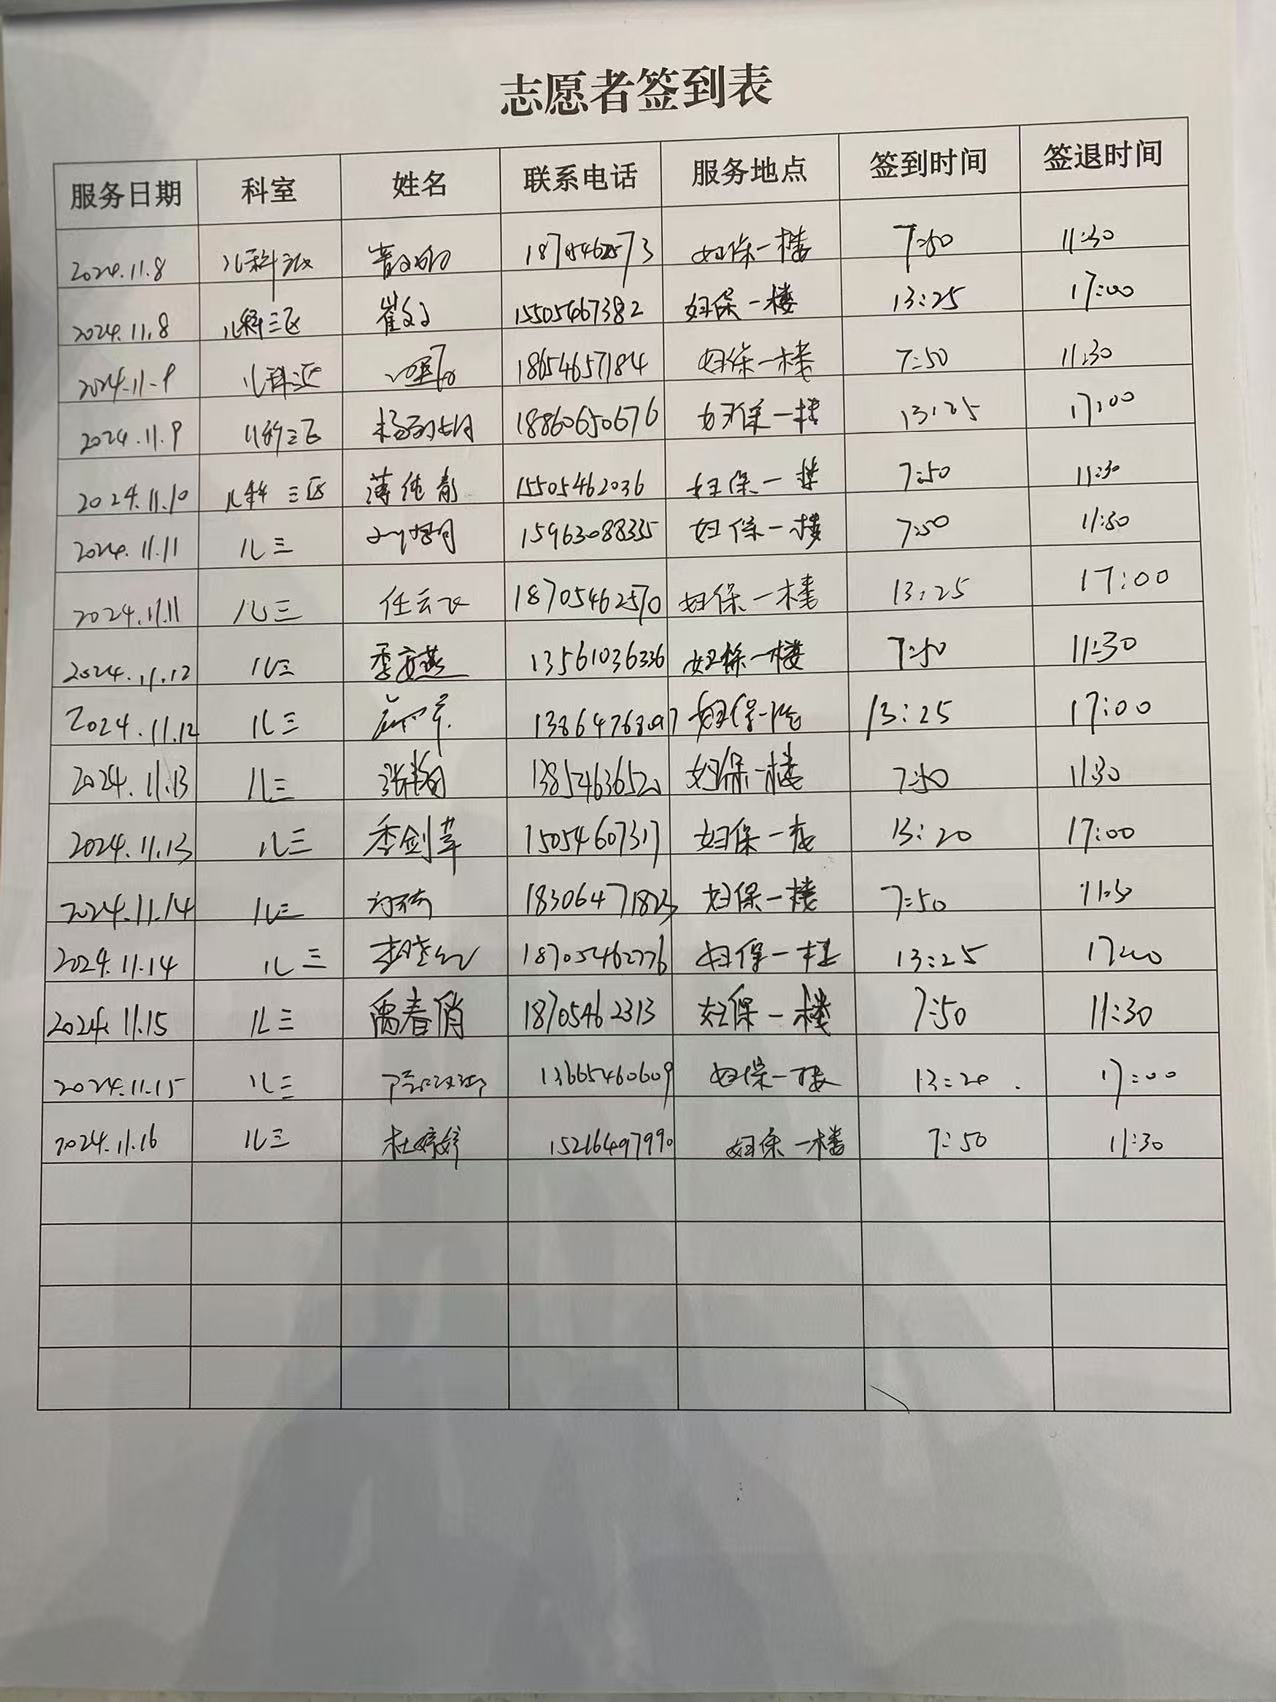 志愿者签到表
服务日期 科室 姓名 联系电话 服务地点 签到时间 签退时间
2024.11.8 儿科三区 妇保一楼 7:50 11:30
2024.11.8 儿科三区 15505467382 妇保一楼 13:25 17:00
2024.11.9 儿科三区 18654657184 妇保一楼 7:50 11:30
2024.11.9 儿科三区 18860650676 妇保一楼 13:25 17:00
2024.11.10 儿科三区 薄纯青 15505462036 妇保一楼 7:50 11:30
2024.11.11 儿三 15963088335 妇保一楼 7:50 11:30
2024.11.11 儿三 任云飞 18705462570 妇保一楼 13:25 17:00
2024.11.12 儿三 13561036336 妇保一楼 7:50 11:30
2024.11.12 儿三 妇保一楼 13:25 17:00
2024.11.13 儿三 13854636520 妇保一楼 7:50 11:30
2024.11.13 儿三 季剑苹 15054607317 妇保一楼 13:20 17:00
2024.11.14 儿三 18306471823 妇保一楼 7:50 11:30
2024.11.14 儿三 18705462776 妇保一楼 13:25 17:00
2024.11.15 儿三 禹春俏 18705462313 妇保一楼 7:50 11:30
2024.11.15 儿三 13665460609 妇保一楼 13:20 17:00
2024.11.16 儿三 杜婷婷 15216497990 妇保一楼 7:50 11:30